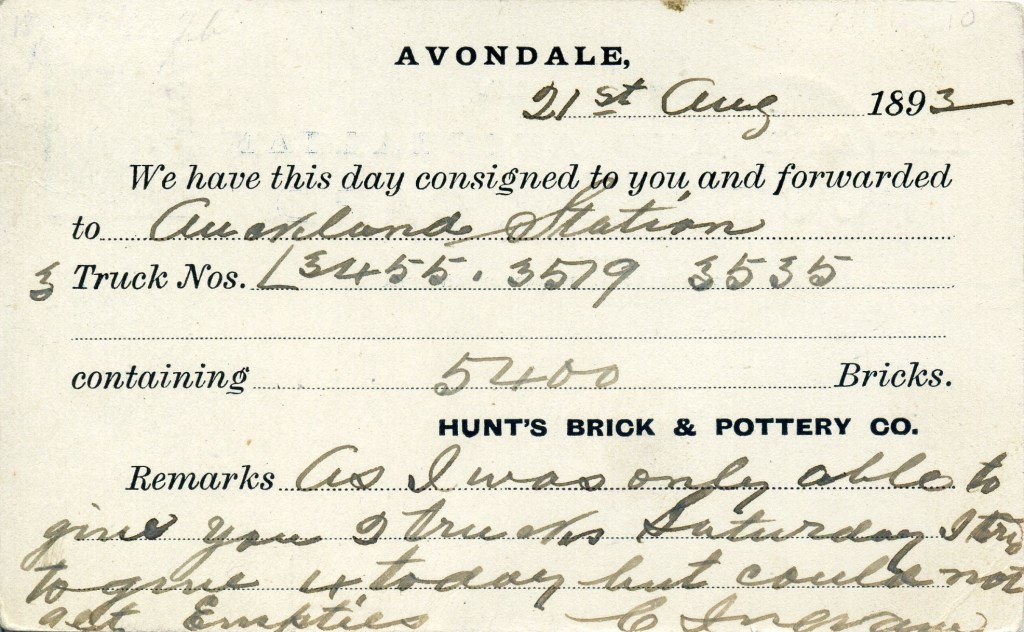 AVONDALE,
21st Aug 1893
We have this day consigned to you and forwarded
to Auckland Station
3 Truck Nos. L 3455. 3519 3535
containing 5400 Bricks.
HUNT'S BRICK & POTTERY CO.
Remarks As I was only able to
give you 2 trucks Saturday I
to give 4 today but could not
get Empties C Ingram